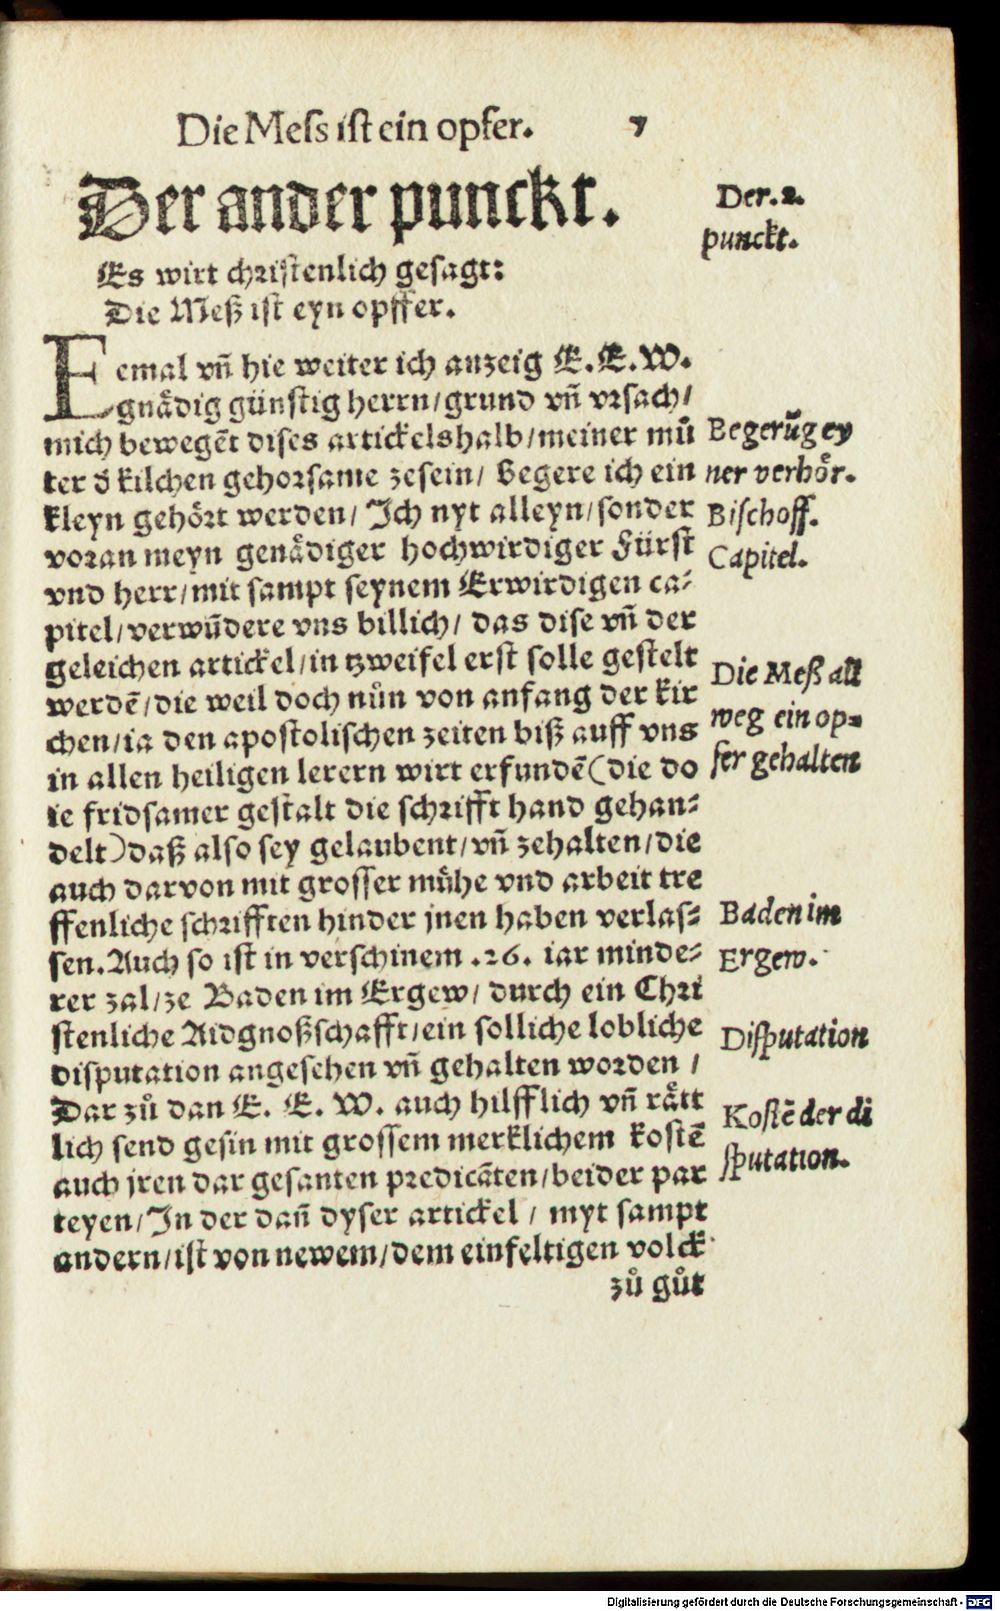 Die Mess ist ein opfer. 7
Der ander punckt.
Der. 2.
punckt.
Es wirt christenlich gesagt:
Die Meß ist eyn opffer.
Eemal vñ hie weiter ich anzeig E. E. W.
gnådig günstig herrn/grund vñ vrsach/
mich bewegẽt dises artickelshalb/meiner mů
ter d̕ kilchen gehorsame zesein/ Begere ich ein
kleyn gehört werden/ Ich nyt alleyn/sonder
voran meyn genådiger hochwirdiger Fürst
vnd herr/mit sampt seynem Erwirdigen ca⸗
pitel/verwũdere vns billich/ das dise vñ der
geleichen artickel/in tzweifel erst solle gestelt
werdẽ/die weil doch nůn von anfang der kir
chen/ia den apostolischen zeiten biß auff vns
in allen heiligen lerern wirt erfundẽ(die do
ie fridsamer gestalt die schrifft hand gehan⸗
delt)daß also sey gelaubent/vñ zehalten/die
auch darvon mit grosser můhe vnd arbeit tre
ffenliche schrifften hinder jnen haben verlas⸗
sen. Auch so ist in verschinem .26. iar minde⸗
rer zal/ze Baden im Ergew/ durch ein Chri
stenliche Aidgnoßschafft/ein solliche lobliche
disputation angesehen vñ gehalten worden /
Dar zů dan E. E. W. auch hilfflich vñ rått
lich send gesin mit grossem merklichem kostẽ
auch jren dar gesanten predicãten/beider par
teyen/In der dañ dyser artickel / myt sampt
andern/ist von newem/dem einfeltigen volck
zů gůt
Begerũg ey
ner verhör.
Bischoff.
Capitel.
Die Meß all
weg ein op⸗
fer gehalten
Baden im
Ergew.
Disputation
Kostẽ der di
sputation.
Digitalisierung gefördert durch die Deutsche Forschungsgemeinschaft - DFG